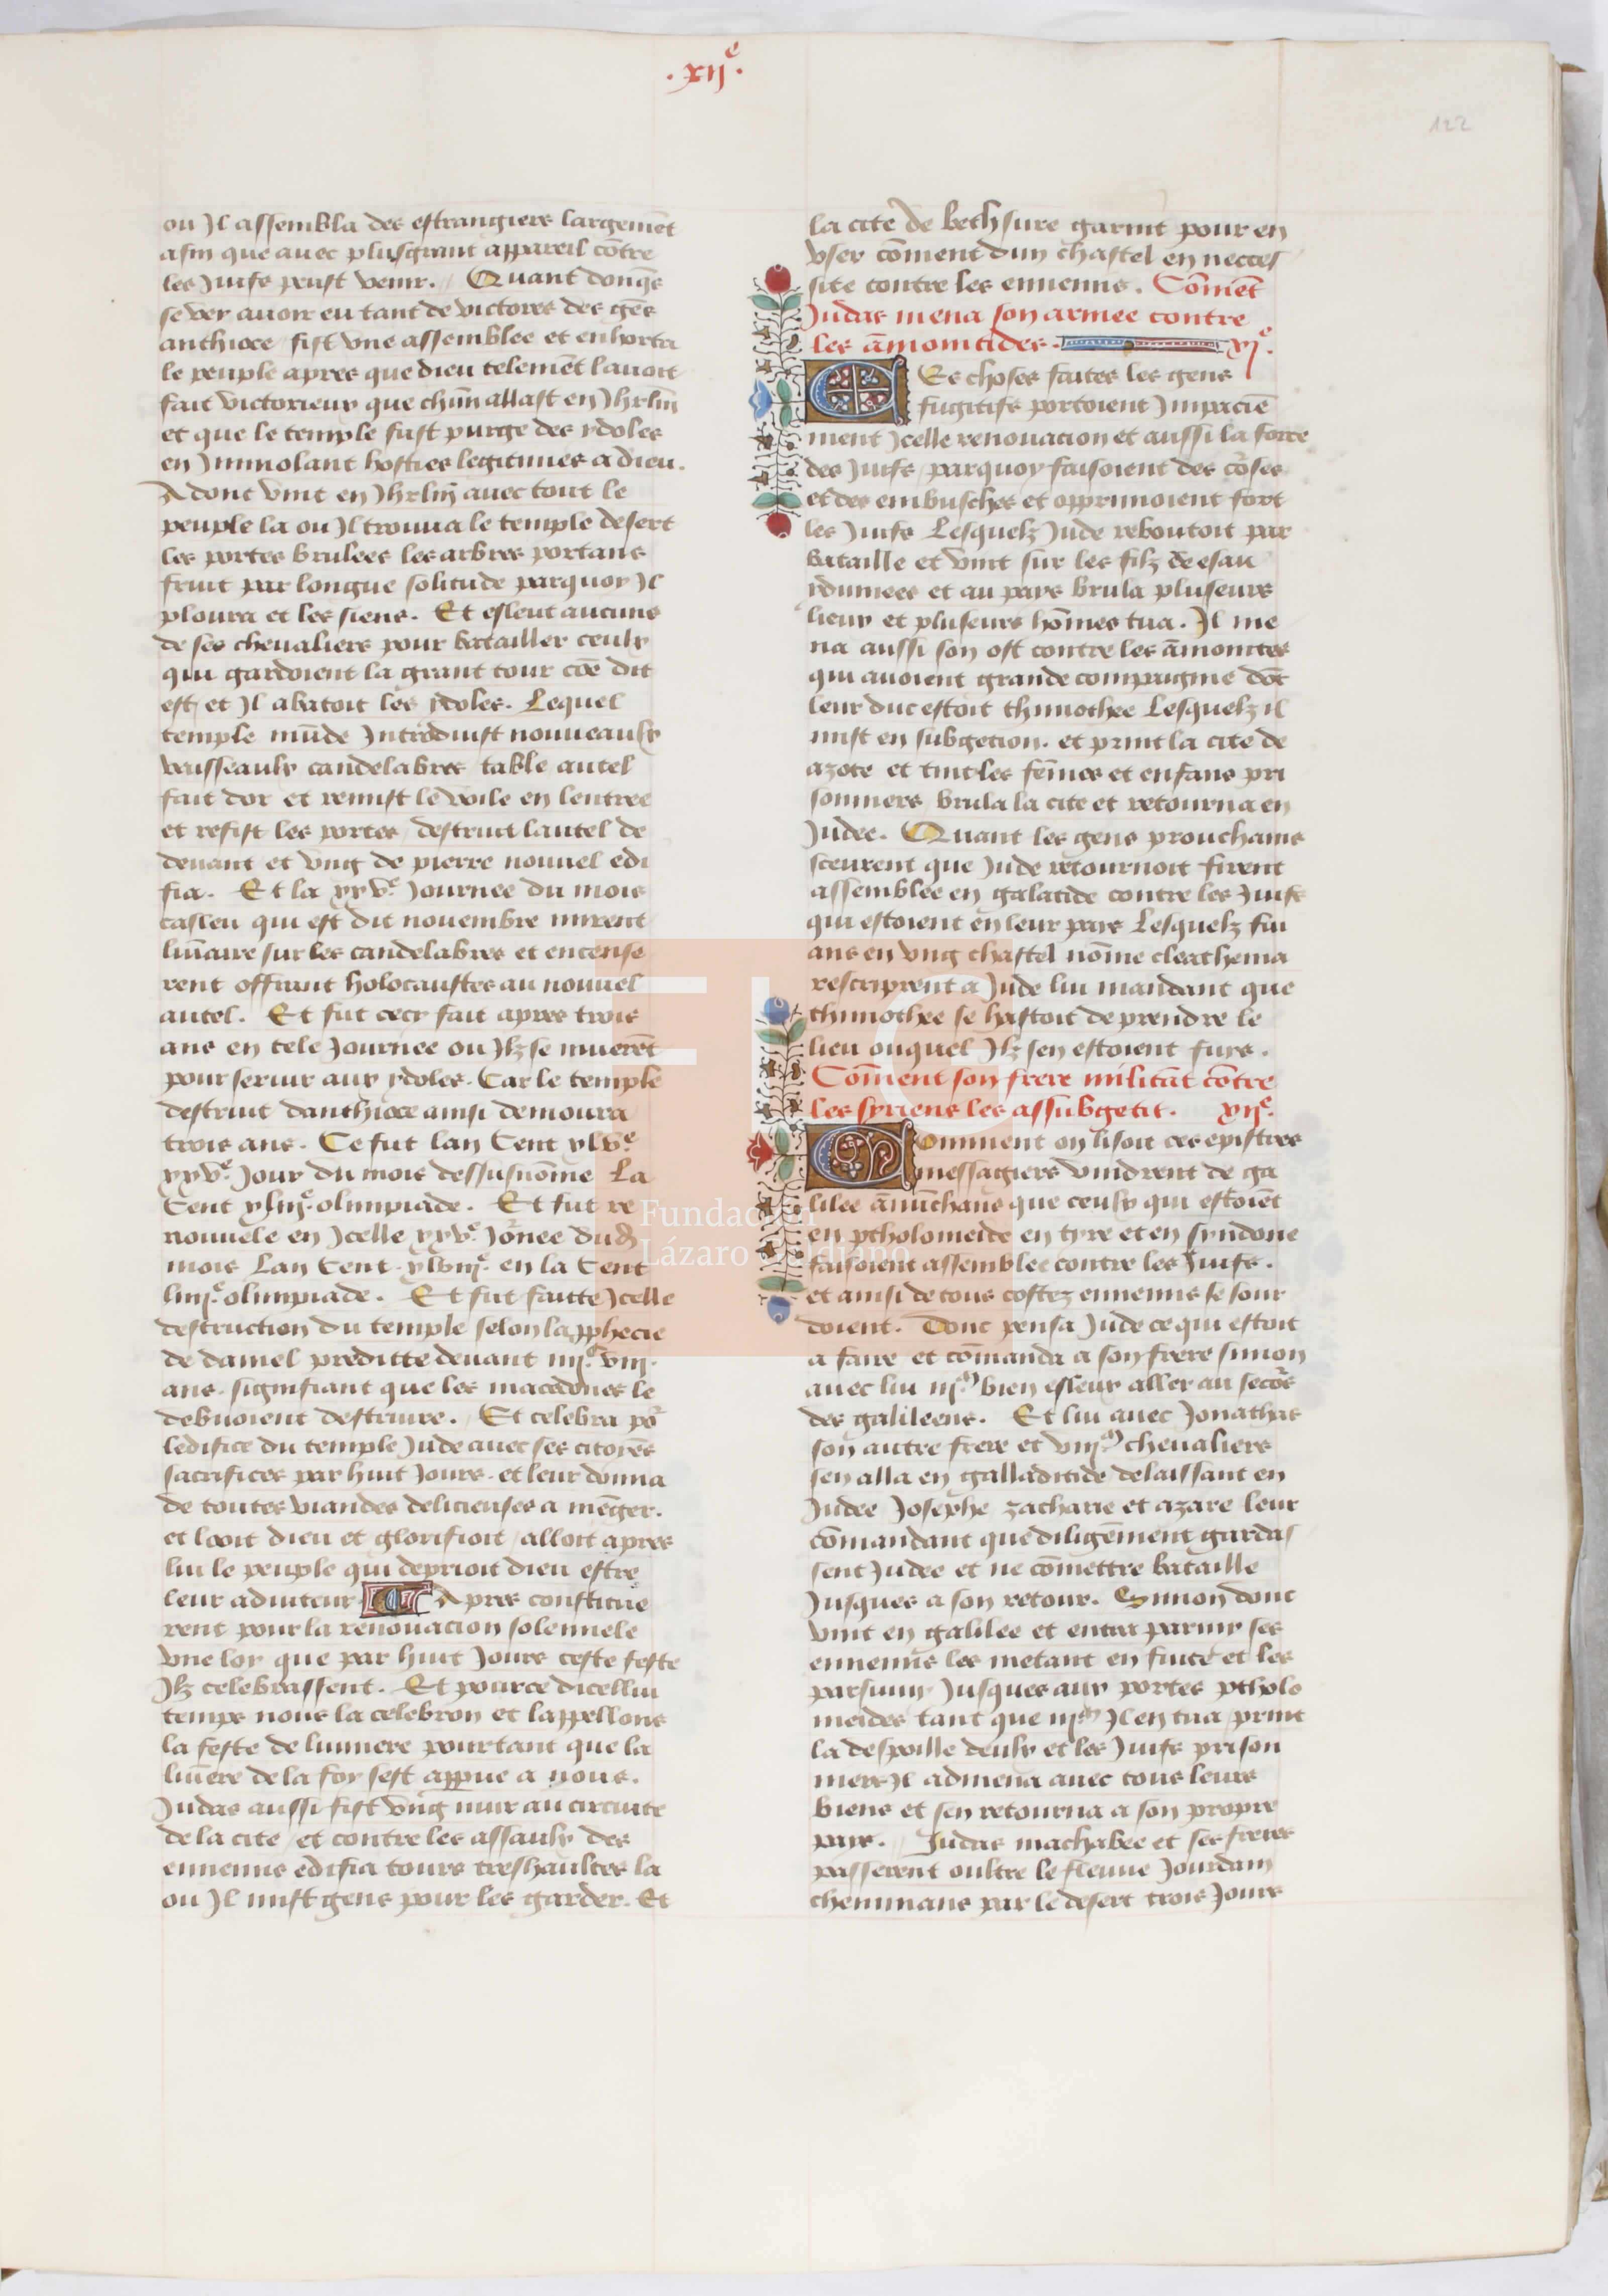 .xijᵉ.
122
ou Jl assembla des estrangiers largemēt
afin que auec plusgrant appareil cōtre
les Juifz peust venir. Quant donq̄s
se vey auoir eu tant de victores des gēs
anthioce fist vne assemblee et enhorta
le peuple apres que dieu telemēt lauoit
fait victorieux que chūn allast en Jhrlm̄
et que le temple fust purge des ydoles
en Jmmolant hosties legitimes a dieu.
Adont vint en Jhrlm̄ auec tout le
peuple la ou Jl trouua le temple desert
les portes brulees les arbres portans
fruit par longue solitude parquoy Jl
ploura et les siens. Et esleut aucuns
de ses cheualiers pour batailler ceulx
qui gardoient la grant tour cōe dit
est, et Jl abatoit les ydoles. Lequel
temple mūde Jntroduist nouueaulx
vaisseaulx candelabres table autel
fait dor et remist le voile en lentree
et refist les portes destruit lautel de
deuant et vng de pierre nouuel edi
fia. Et la xxvᵉ. Journee du mois
casleu qui est dit nouembre mirent
lūiaire sur les candelabres et encense
rent offrant holocaustes au nouuel
autel. Et fut cecy fait apres trois
ans en tele Journee ou Jlz se muerēt
pour seruir aux ydoles. Car le temple
destruit danthioce ainsi demoura
trois ans. Ce fut lan Cent xlvᵉ
xxvᵉ. Jour du mois dessusnōme La
Cent xliijᵉ. olimpiade. Et fut re
nouuele en Jcelle xxvᵉ. Jor̄nee dud
mois Lan Cent. xlviijᵉ. en la Cent
liiijᵉ. olimpiade. Et fut faitte Jcelle
destruction du temple selon la pphecie
de daniel preditte deuant iiijᶜ. viij.
ans. signifiant que les macedones le
debuoient destruire. Et celebra po͛
ledifice du temple Jude auec ses citoyēs
sacrifices par huit Jours. et leur donna
de toutes viandes delicieuses a mēger.
et looit dieu et glorifioit alloit apres
lui le peuple qui deprioit dieu estre
leur adiuteur. Apres constitue
rent pour la renouacion solennele
vne loy que par huit Jours ceste feste
Jlz celebrassent. Et pource dicellui
temps nous la celebron et lappellons
la feste de lumiere pourtant que la
lūiere de la foy sest appue a nous.
Judas aussi fist vng mur au circuite
de la cite et contre les assaulx des
ennemis edifia tours treshaultes la
ou Jl mist gens pour les garder. Et
la cite de bethsure garnit pour en
vser cōment dun chastel en necces
site contre les ennemis. Cōmēt
Judas mena son armee contre
les āmonitides. xjᵉ.
Ces choses faites les gens
fugitifz portoient Jmpaciē
ment Jcelle renouacion et aussi la force
des Juifz parquoy faisoient des co͛ses
et des embusches et opprimoient fort
les Juifz Lesquelz Jude reboutoit par
bataille et vint sur les filz de esau
ydumees et au pays brula pluseurs
lieux et pluseurs hōmes tua. Jl me
na aussi son ost contre les āmonites
qui auoient grande compaignie dōt
leur duc estoit thimothee Lesquelz il
mist en subgetion. et print la cite de
azote et tint les fēmes et enfans pri
sonniers brula la cite et retourna en
Judee. Quant les gens prouchains
sceurent que Jude retournoit firent
assemblee en galatide contre les Juifz
qui estoient en leur pais Lesquelz fui
ans en vng chastel nōme cleathema
rescriprent a Jude lui mandant que
thimothee se hastoit de prendre le
lieu ouquel Jlz sen estoient fuys.
Cōment son frere militāt cōtre
les syriens les assubgetit. xijᵉ.
Comment on lisoit ces epistres
messagiers vindrent de ga
lilee ānūchans que ceulx qui estoiēt
en ptholomeide en tyre et en syndone
faisoient assemblee contre les Juifz.
et ainsi de tous costez ennemis se sour
doient. Donc pensa Jude ce qui estoit
a faire et cōmanda a son frere simon
auec lui iijᵐ bien esleux aller au seco͛s
des galileens. Et lui auec Jonathas
son autre frere et viijᵐ cheualiers
sen alla en galladitide delaissant en
Judee Josephe zacharie et azare leur
cōmandant que diligēment gardas
sent Judee et ne cōmettre bataille
Jusques a son retour. Simon dont
vint en galilee et entra parmy ses
ennemis les metant en fuite et les
parsuiuy Jusques aux portes ptholo
meides tant que iijᵐ Jl en tua print
la despoille deulx et les Juifz prison
niers Jl admena auec tous leurs
biens et sen retourna a son propre
pays. Judas machabee et ses freres
passerent oultre le fleuue Jourdain
cheminans par le desert trois Jours
FLG
Fundación
Lázaro Galdiano